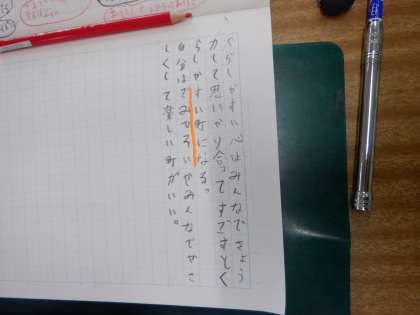 くらしやすい心はみんなできょう
力して思いやり合ってすごすとく
らしやすい町になる。
自分はごみひろいやみんなでやさ
しくして楽しい町がいい。